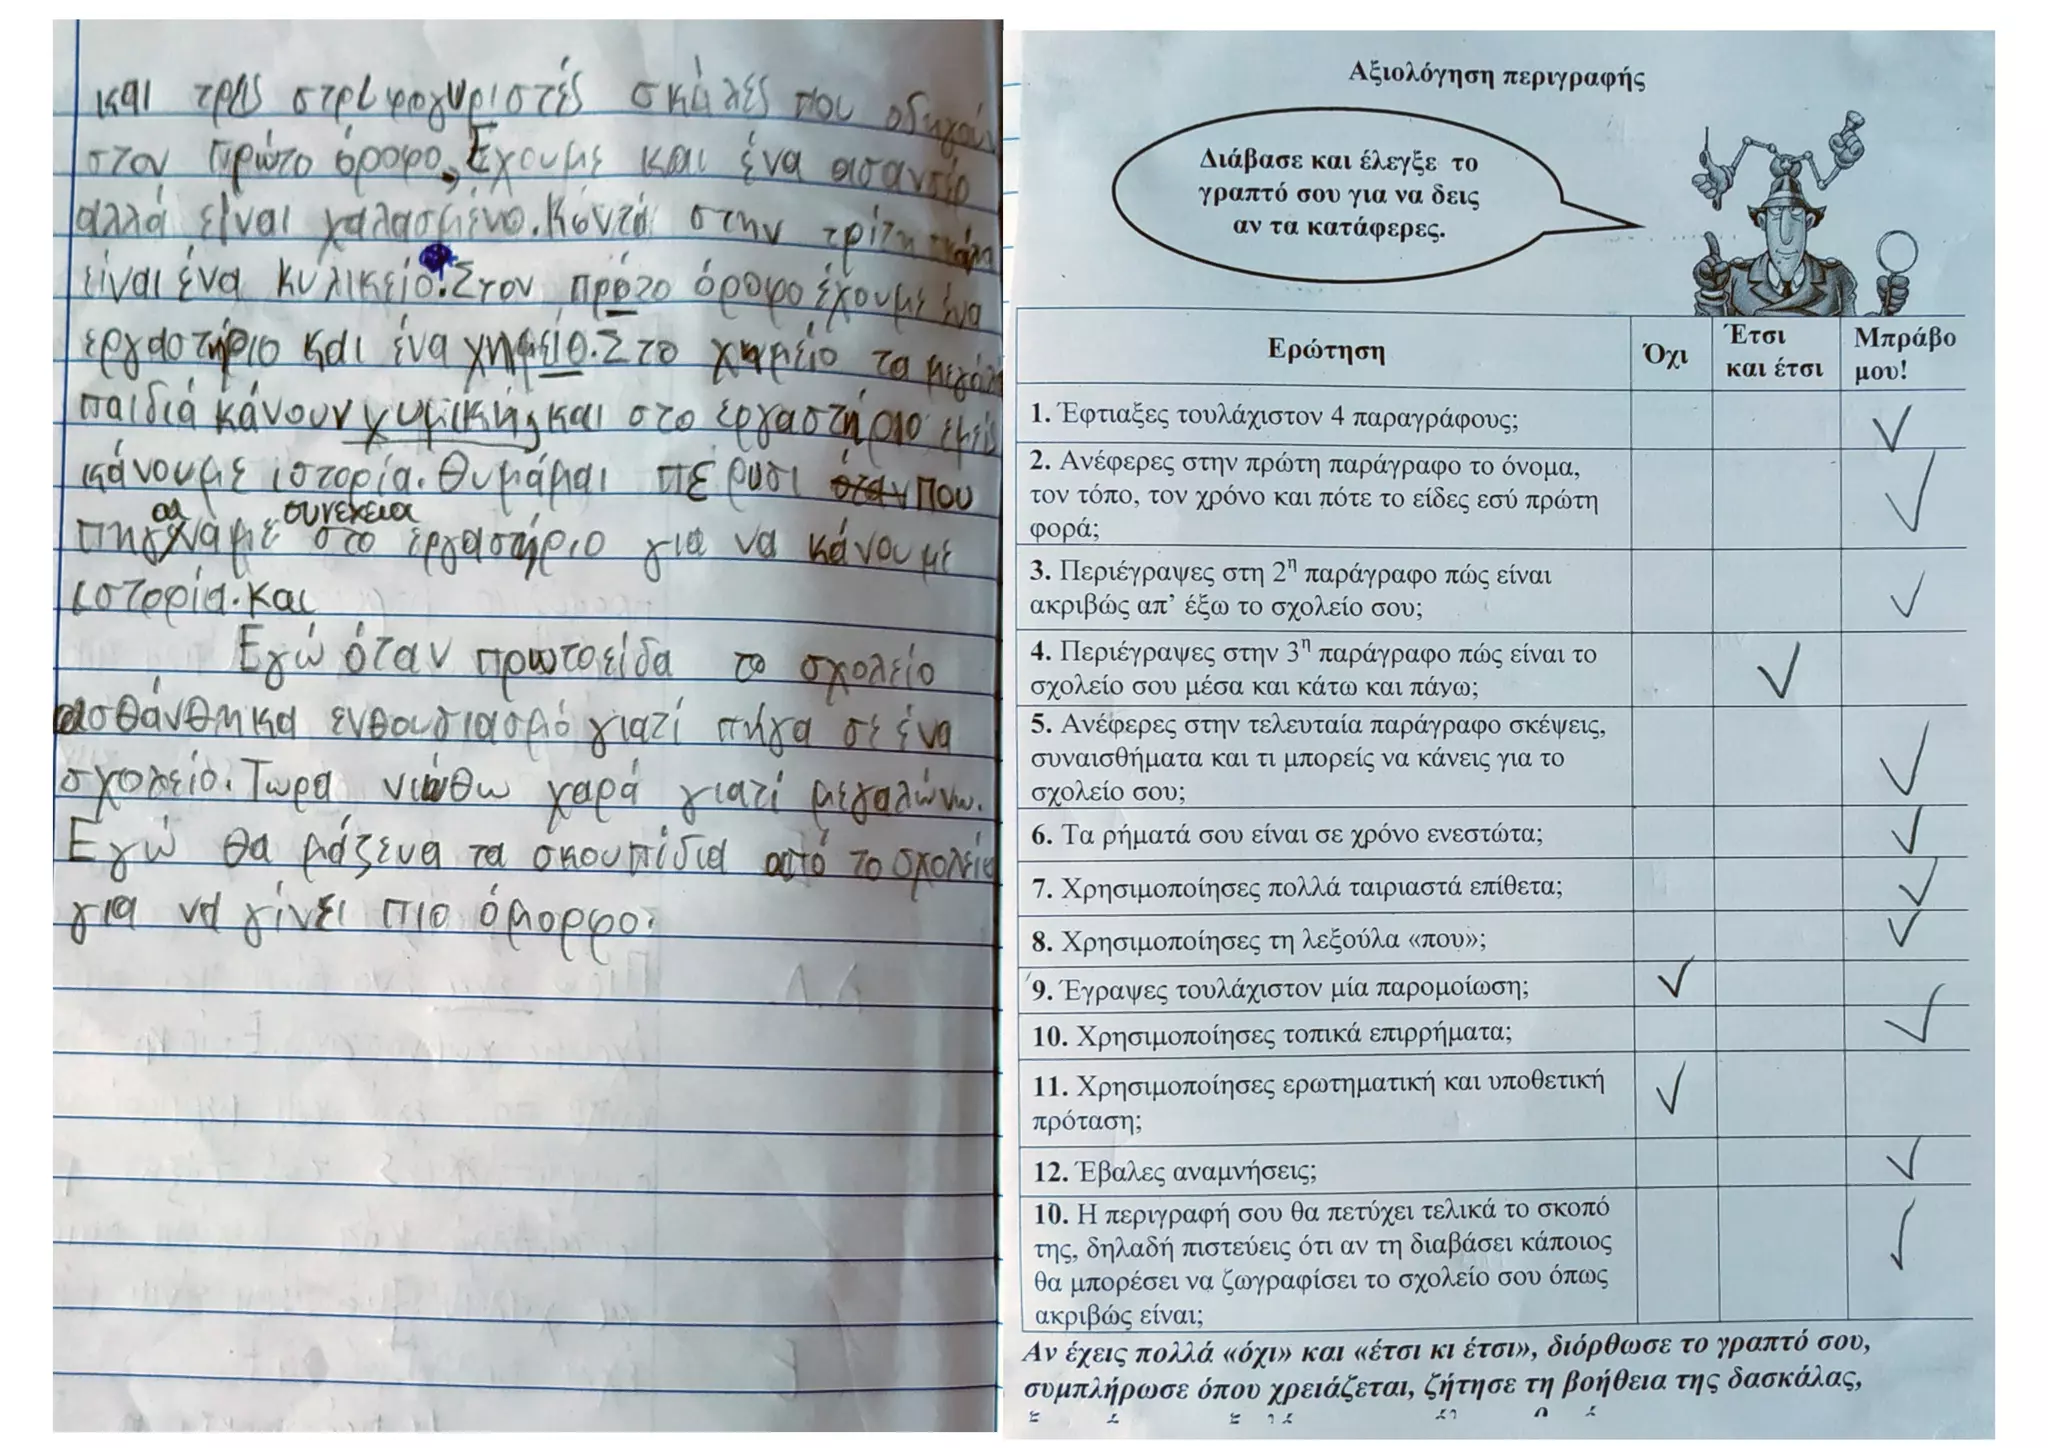 και τρις στριφογυριστές σκάλες που οδηγούν
στον πρώτο όροφο, Έχουμε και ένα ασανσέρ
αλλά είναι χαλασμένο. Κοντά στην τρίτη σκάλα
είναι ένα κυλικείο. Στον πρότο όροφο έχουμε ένα
εργαστήριο και ένα χημείο. Στο χημείο τα μεγάλα
παιδιά κάνουν χυμικής, και στο εργαστήριο εμείς
κάνουμε ιστορία. Θυμάμαι πέρυσι όταν που
συνεχεια
πηγαναμε στο εργαστήριο για να κάνουμε
ιστορία. και
Εγώ όταν πρωτοείδα το σχολείο
αισθάνθηκα ενθουσιασμό γιατί πήγα σε ένα
σχολείο. Τωρα νιώθω χαρά γιατί μεγαλώνω.
Εγώ θα μάζευα τα σκουπίδια από το σχολείο
για να γίνει πιο όμορφο.
Αξιολόγηση περιγραφής
Διάβασε και έλεγξε το
γραπτό σου για να δεις
αν τα κατάφερες.
Ερώτηση Όχι Έτσι και έτσι Μπράβο μου!
1. Έφτιαξες τουλάχιστον 4 παραγράφους; ✓
2. Ανέφερες στην πρώτη παράγραφο το όνομα,
τον τόπο, τον χρόνο και πότε το είδες εσύ πρώτη ✓
φορά;
3. Περιέγραψες στη 2η παράγραφο πώς είναι
ακριβώς απ’ έξω το σχολείο σου; ✓
4. Περιέγραψες στην 3η παράγραφο πώς είναι το
σχολείο σου μέσα και κάτω και πάνω; ✓
5. Ανέφερες στην τελευταία παράγραφο σκέψεις,
συναισθήματα και τι μπορείς να κάνεις για το ✓
σχολείο σου;
6. Τα ρήματά σου είναι σε χρόνο ενεστώτα; ✓
7. Χρησιμοποίησες πολλά ταιριαστά επίθετα; ✓
8. Χρησιμοποίησες τη λεξούλα «που»; ✓
9. Έγραψες τουλάχιστον μία παρομοίωση; ✓
10. Χρησιμοποίησες τοπικά επιρρήματα; ✓
11. Χρησιμοποίησες ερωτηματική και υποθετική ✓
πρόταση;
12. Έβαλες αναμνήσεις; ✓
10. Η περιγραφή σου θα πετύχει τελικά το σκοπό
της, δηλαδή πιστεύεις ότι αν τη διαβάσει κάποιος ✓
θα μπορέσει να ζωγραφίσει το σχολείο σου όπως
ακριβώς είναι;
Αν έχεις πολλά «όχι» και «έτσι κι έτσι», διόρθωσε το γραπτό σου,
συμπλήρωσε όπου χρειάζεται, ζήτησε τη βοήθεια της δασκάλας,